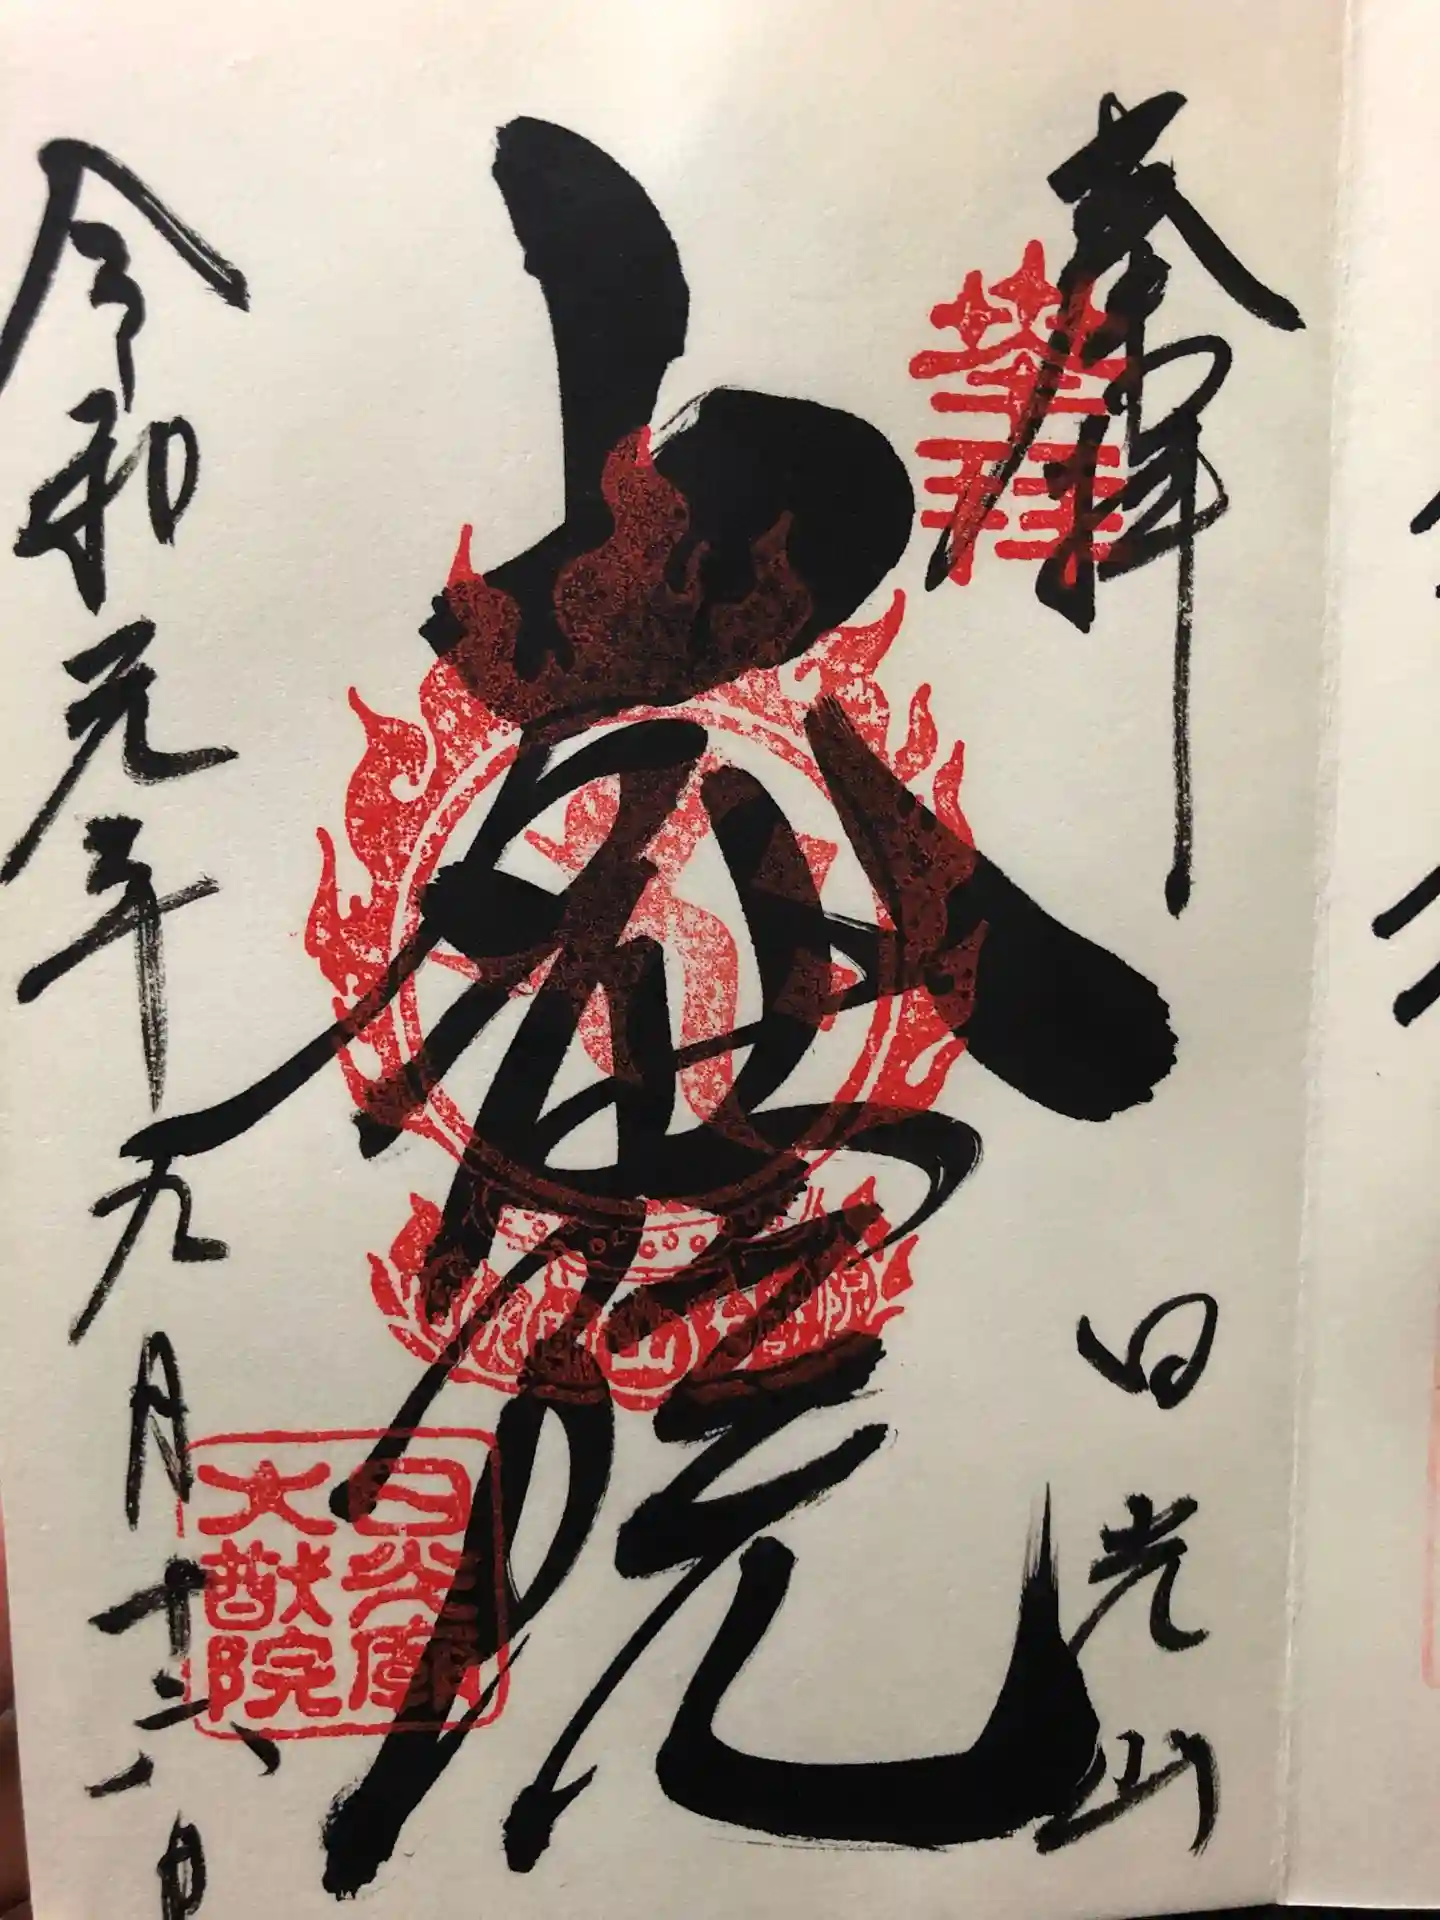 奉拝
日光山
大猷院
令和元年九月十六日
日光廟
大猷院